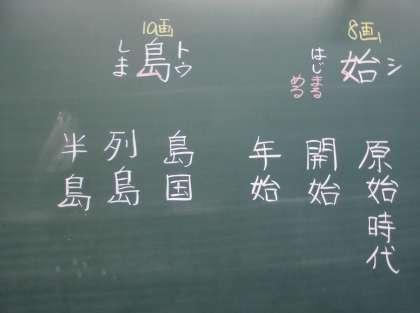 8画
シ
始
はじ
まる
める
原始時代
開始
年始
10画
トウ
島
しま
島国
列島
半島